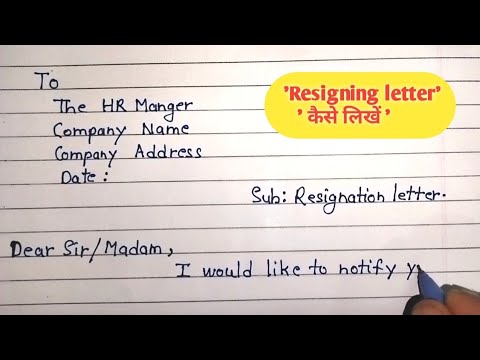 'Resigning letter'
' कैसे लिखें '
To
The HR Manger
Company Name
Company Address
Date :
Sub: Resignation letter.
Dear Sir/Madam,
I would like to notify y